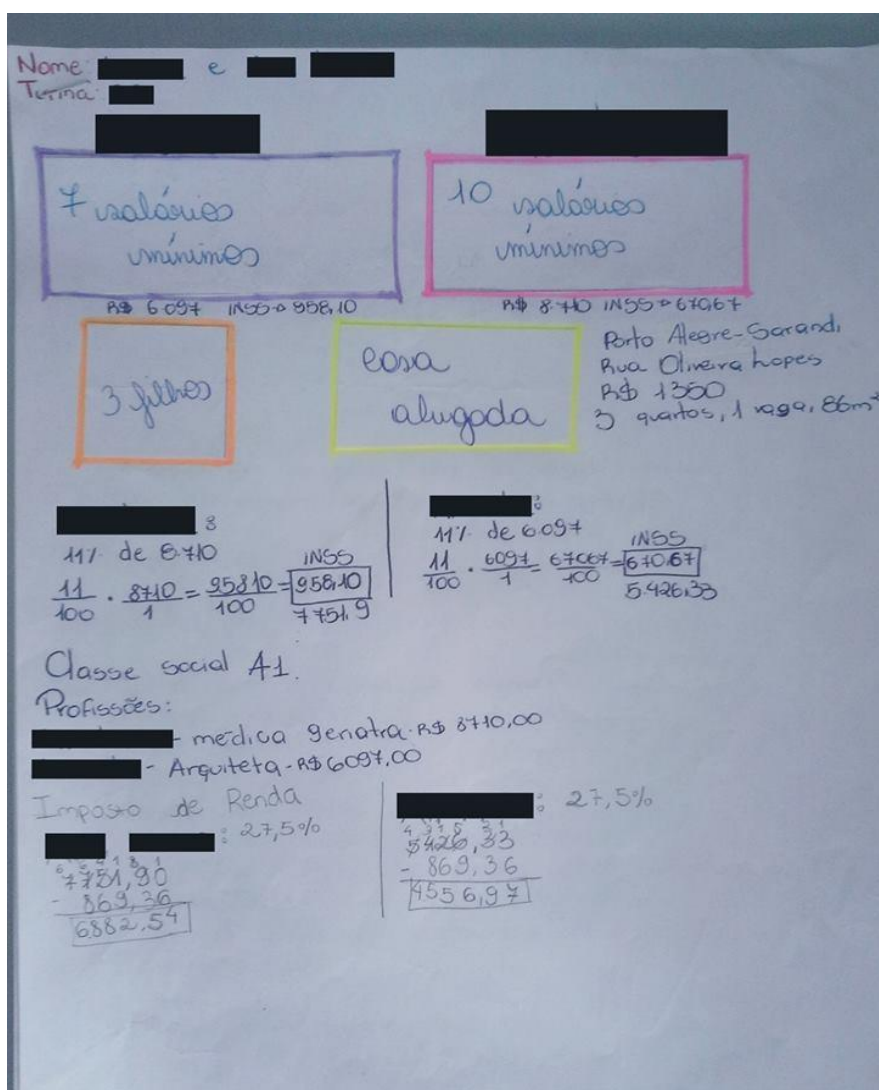 Nome: e
Turma:
7 salários
mínimos
10 salários
mínimos
R$ 6.097 INSS→ 958,10
R$ 8.710 INSS→ 670,67
3 filhos
casa
alugada
Porto Alegre-Sarandi
Rua Oliveira Lopes
R$ 1350
3 quartos, 1 vaga, 86m²
:
11% de 8.710
INSS
11/100 . 8710/1 = 95810/100 = 958,10
7751,9
:
11% de 6.097
INSS
11/100 . 6097/1 = 67067/100 = 670,67
5.426,33
Classe social A1.
Profissões:
- médica geriatra - R$ 8710,00
- Arquiteta - R$ 6097,00
Imposto de Renda
: 27,5%
7751,90
- 869,36
6882,54
: 27,5%
5426,33
- 869,36
4556,97